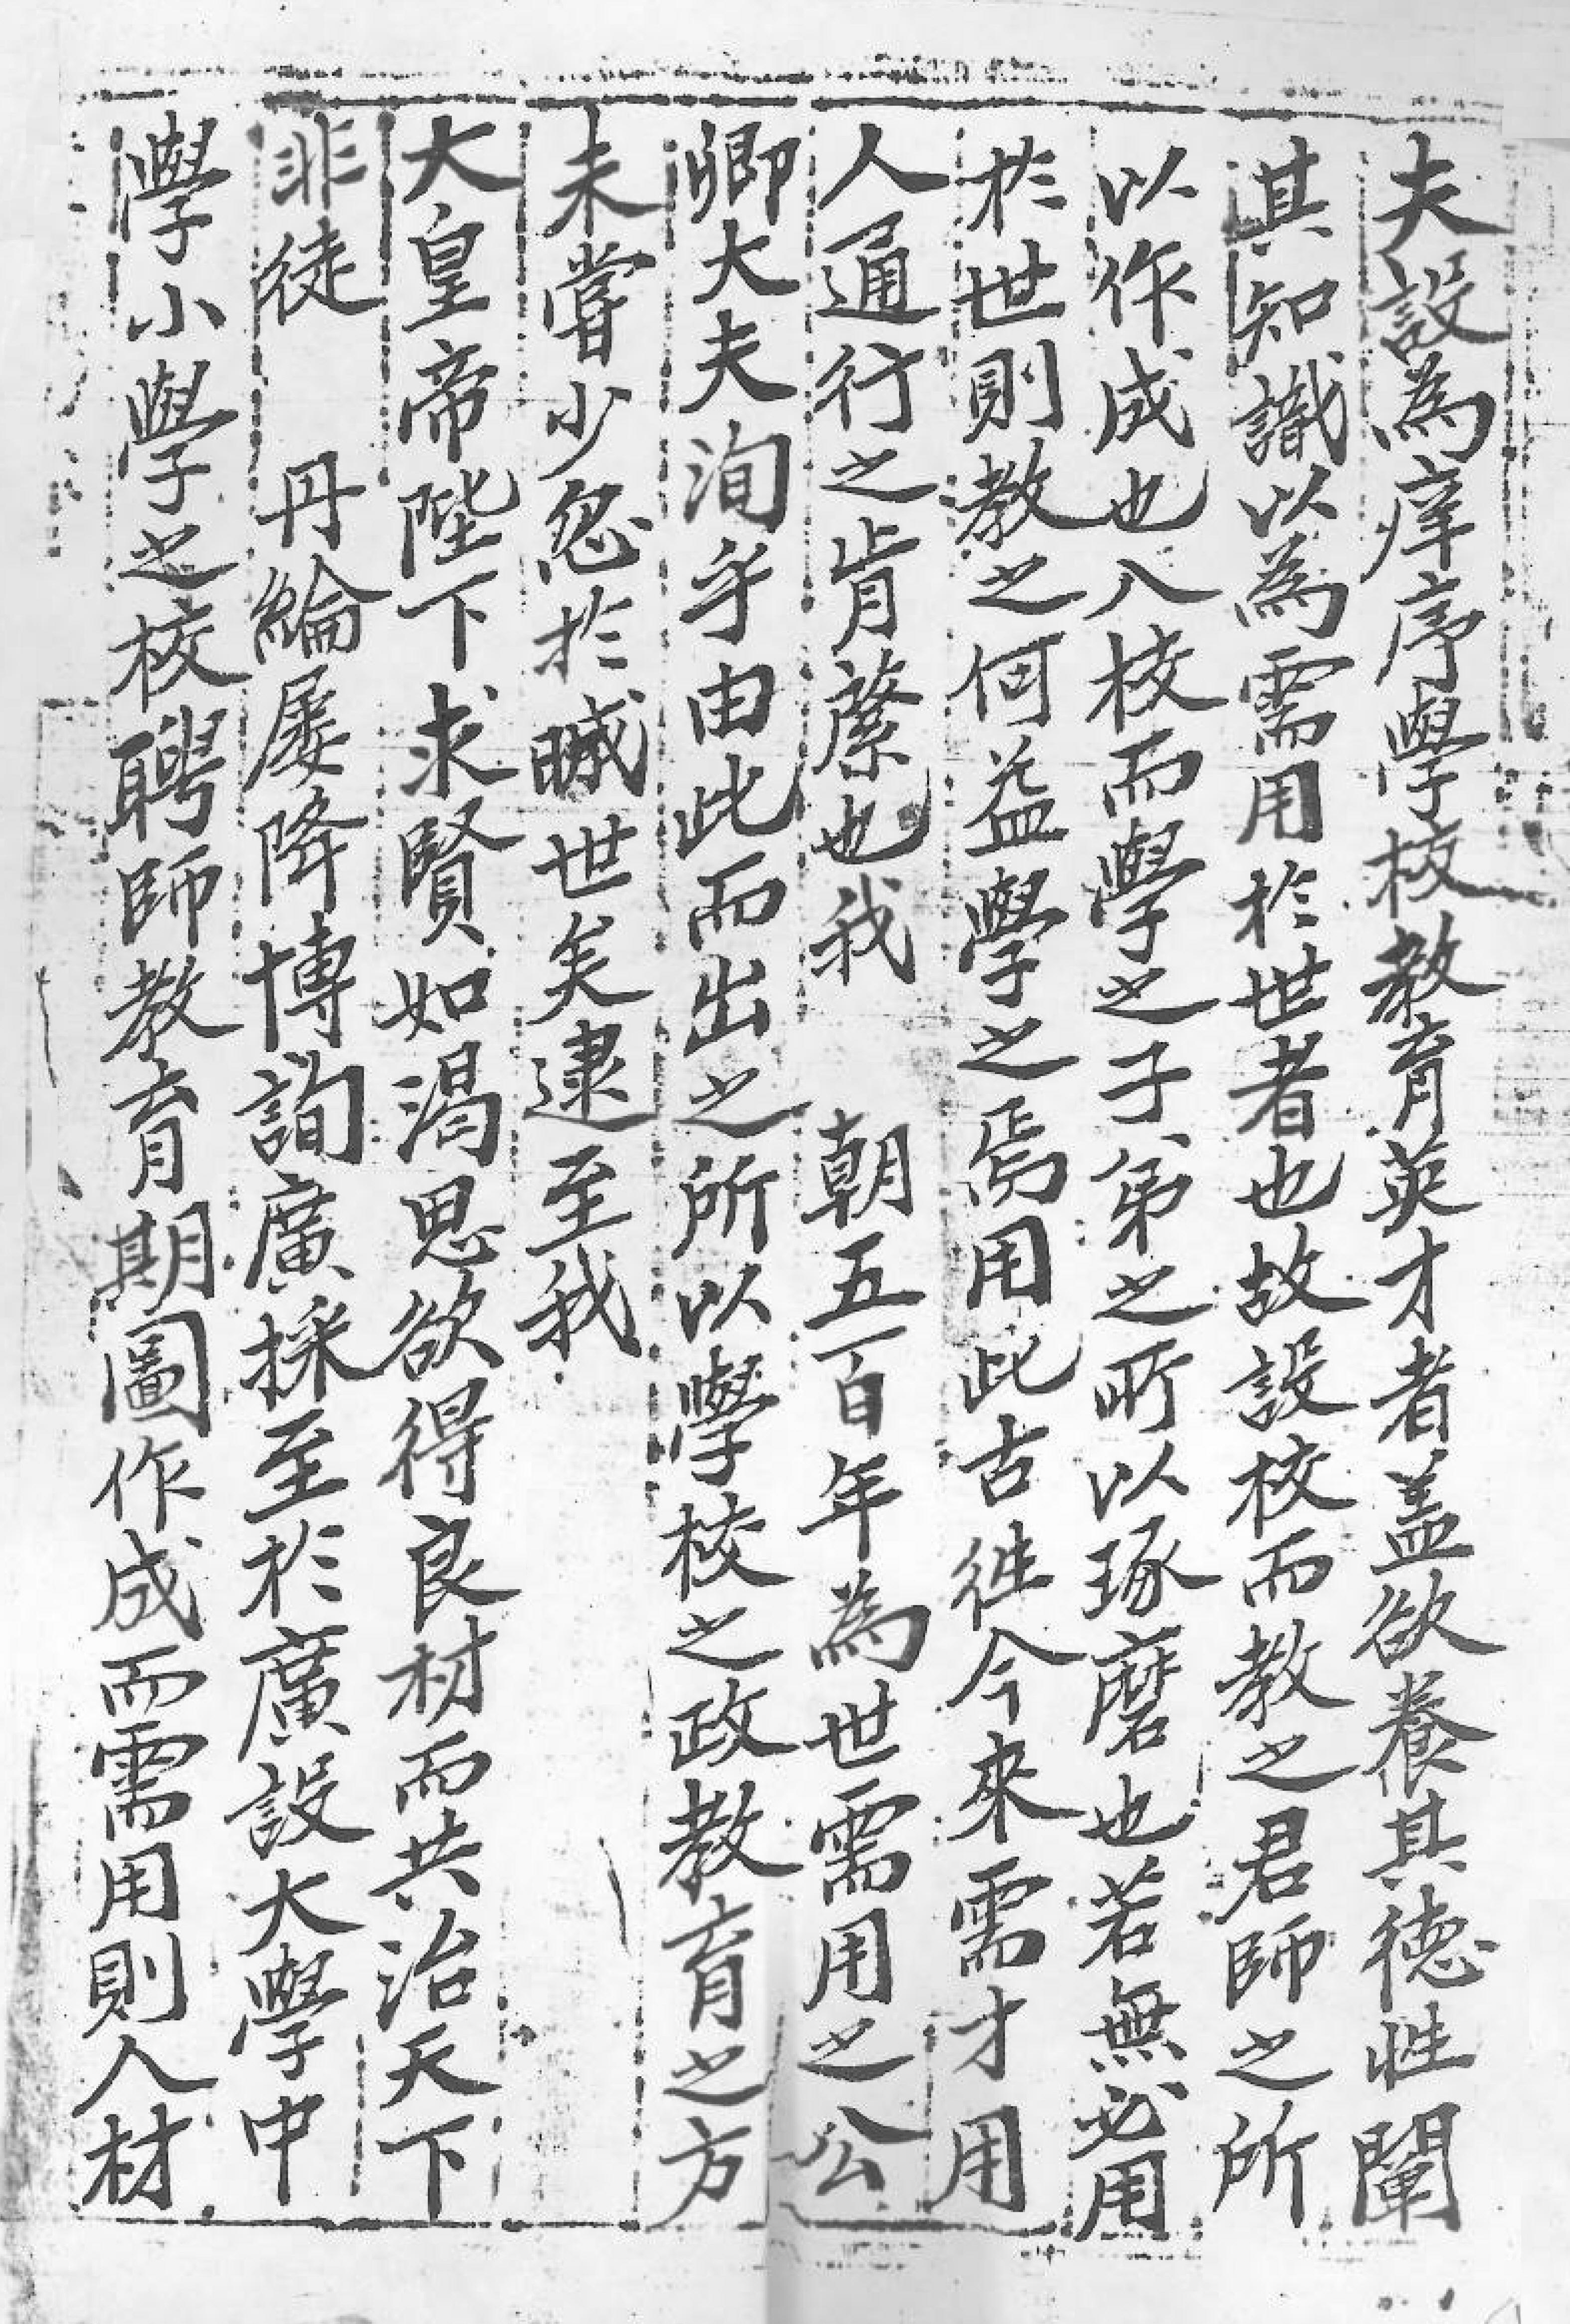 夫設為庠序學校教育英才者盖欲養其德性闡
其知識以為需用於世者也故設校而教之君師之所
以作成也入校而學之子弟之所以琢磨也若無必用
於世則教之何益學之焉用此古往今來需才用
人通行之肯綮也我　朝五百年為世需用之公
卿大夫洵乎由此而出之所以學校之政教育之方
未嘗少忽於晠世矣逮至我
大皇帝陛下求賢如渴思欲得良材而共治天下
非徒　丹綸屢降博詢廣採至於廣設大學中
學小學之校聘師教育期圖作成而需用則人材